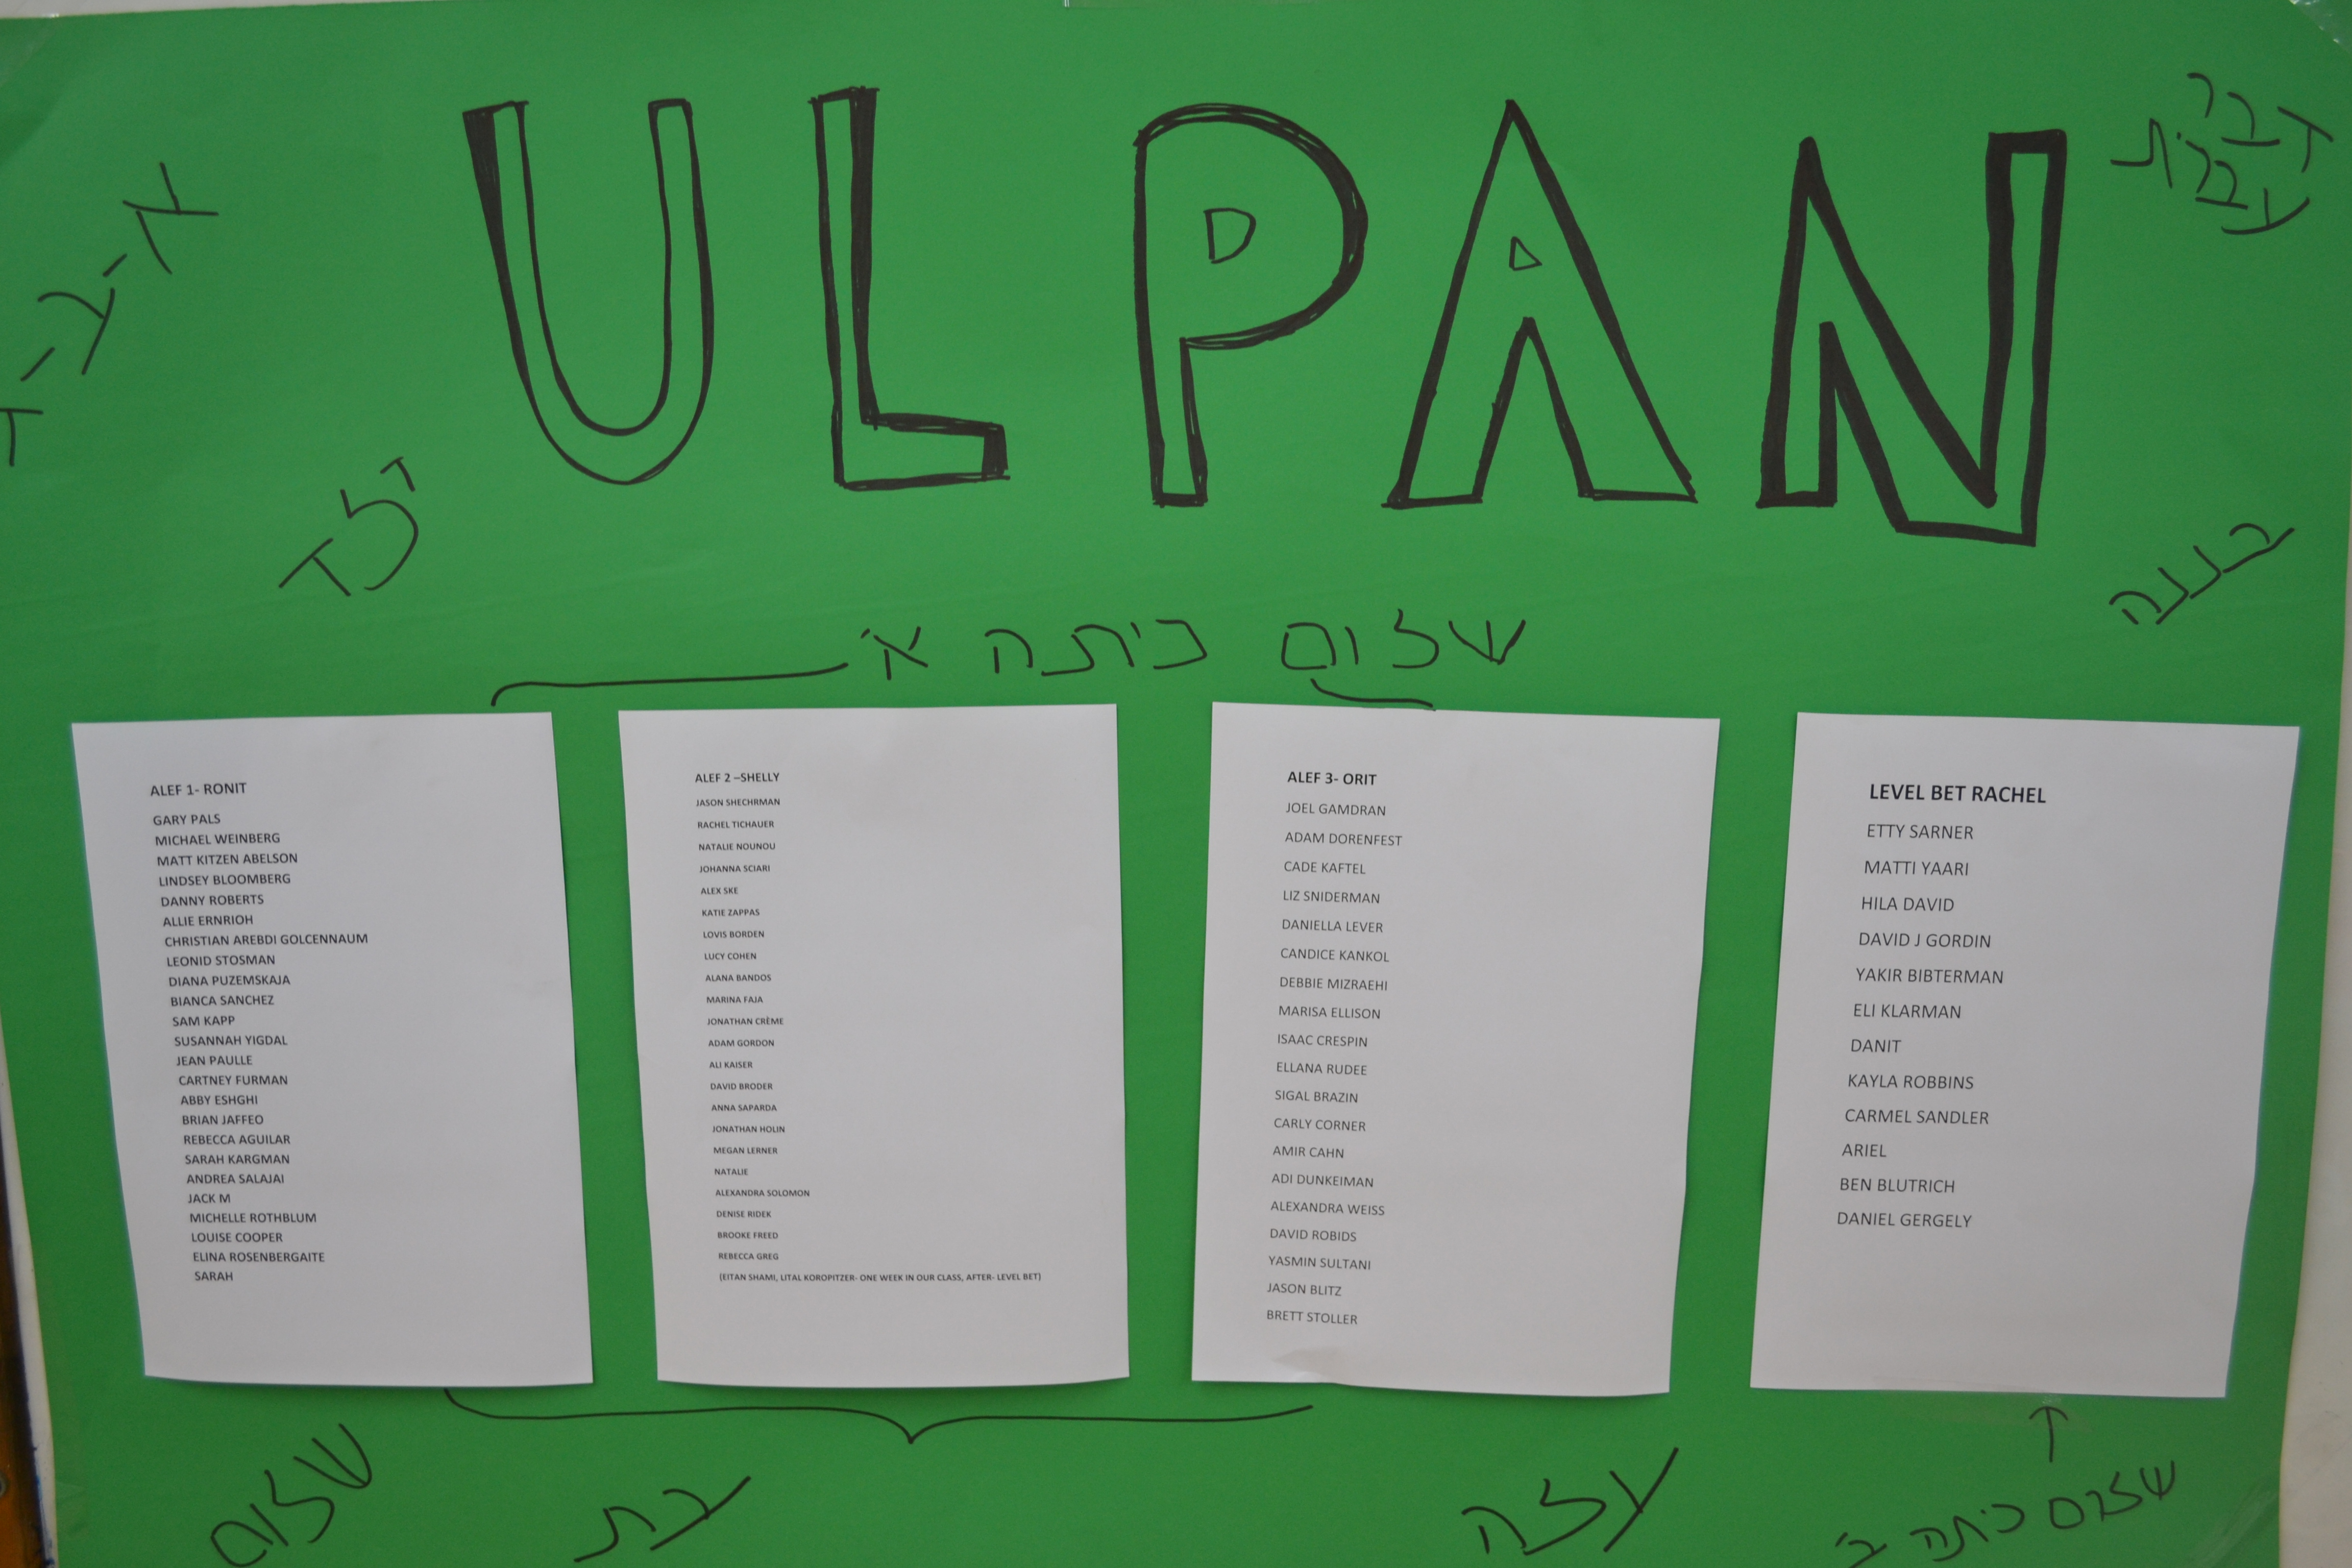 ULPAN
דברי
עברית
א-ב-ד
ילד
בננה
שלום כיתה א'
ALEF 1- RONIT
GARY PALS
MICHAEL WEINBERG
MATT KITZEN ABELSON
LINDSEY BLOOMBERG
DANNY ROBERTS
ALLIE ERNRIOH
CHRISTIAN AREBDI GOLCENNAUM
LEONID STOSMAN
DIANA PUZEMSKAJA
BIANCA SANCHEZ
SAM KAPP
SUSANNAH YIGDAL
JEAN PAULLE
CARTNEY FURMAN
ABBY ESHGHI
BRIAN JAFFEO
REBECCA AGUILAR
SARAH KARGMAN
ANDREA SALAJAI
JACK M
MICHELLE ROTHBLUM
LOUISE COOPER
ELINA ROSENBERGAITE
SARAH
ALEF 2 –SHELLY
JASON SHECHRMAN
RACHEL TICHAUER
NATALIE NOUNOU
JOHANNA SCIARI
ALEX SKE
KATIE ZAPPAS
LOVIS BORDEN
LUCY COHEN
ALANA BANDOS
MARINA FAJA
JONATHAN CRÈME
ADAM GORDON
ALI KAISER
DAVID BRODER
ANNA SAPARDA
JONATHAN HOLIN
MEGAN LERNER
NATALIE
ALEXANDRA SOLOMON
DENISE RIDEK
BROOKE FREED
REBECCA GREG
(EITAN SHAMI, LITAL KOROPITZER- ONE WEEK IN OUR CLASS, AFTER- LEVEL BET)
ALEF 3- ORIT
JOEL GAMDRAN
ADAM DORENFEST
CADE KAFTEL
LIZ SNIDERMAN
DANIELLA LEVER
CANDICE KANKOL
DEBBIE MIZRAEHI
MARISA ELLISON
ISAAC CRESPIN
ELLANA RUDEE
SIGAL BRAZIN
CARLY CORNER
AMIR CAHN
ADI DUNKEIMAN
ALEXANDRA WEISS
DAVID ROBIDS
YASMIN SULTANI
JASON BLITZ
BRETT STOLLER
LEVEL BET RACHEL
ETTY SARNER
MATTI YAARI
HILA DAVID
DAVID J GORDIN
YAKIR BIBTERMAN
ELI KLARMAN
DANIT
KAYLA ROBBINS
CARMEL SANDLER
ARIEL
BEN BLUTRICH
DANIEL GERGELY
שלום
בת
שלום כיתה ב'